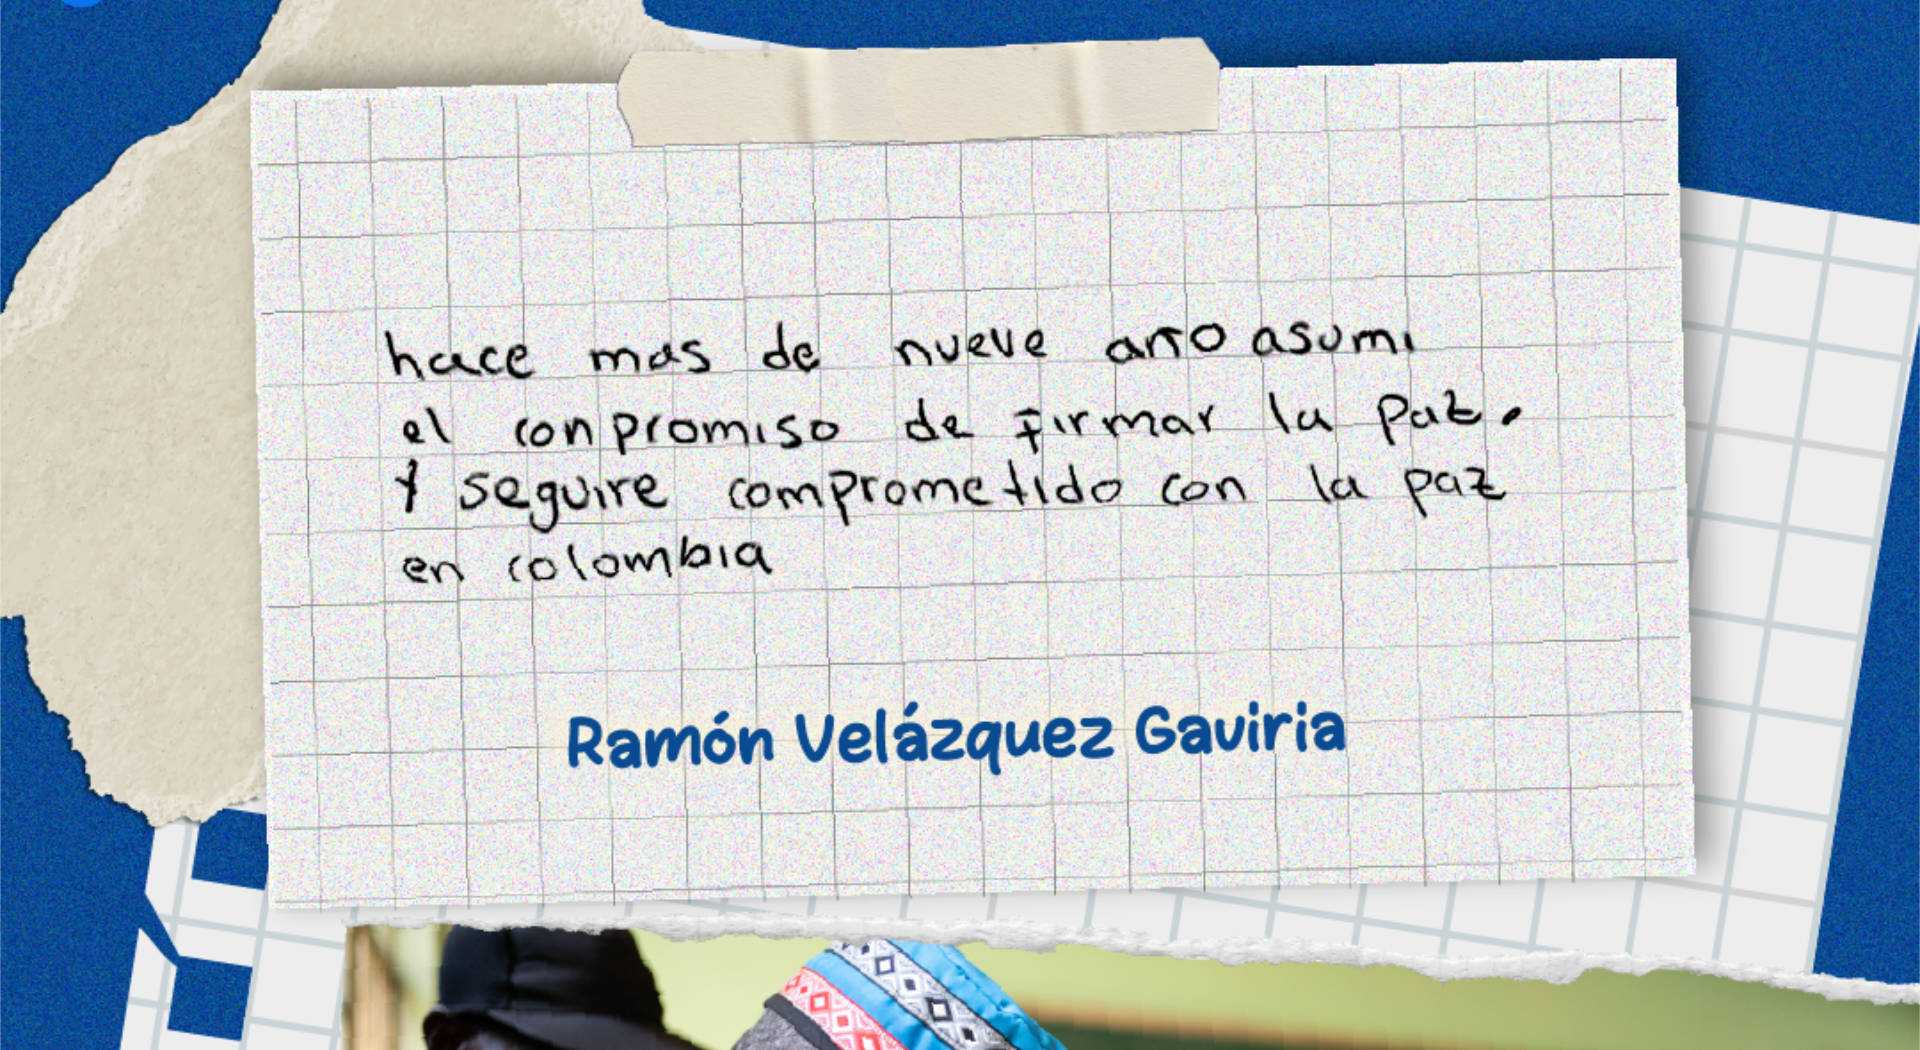 hace mas de nueve año asumi
el conpromiso de firmar la paz.
Y seguire comprometido con la paz
en colombia
Ramón Velázquez Gaviria